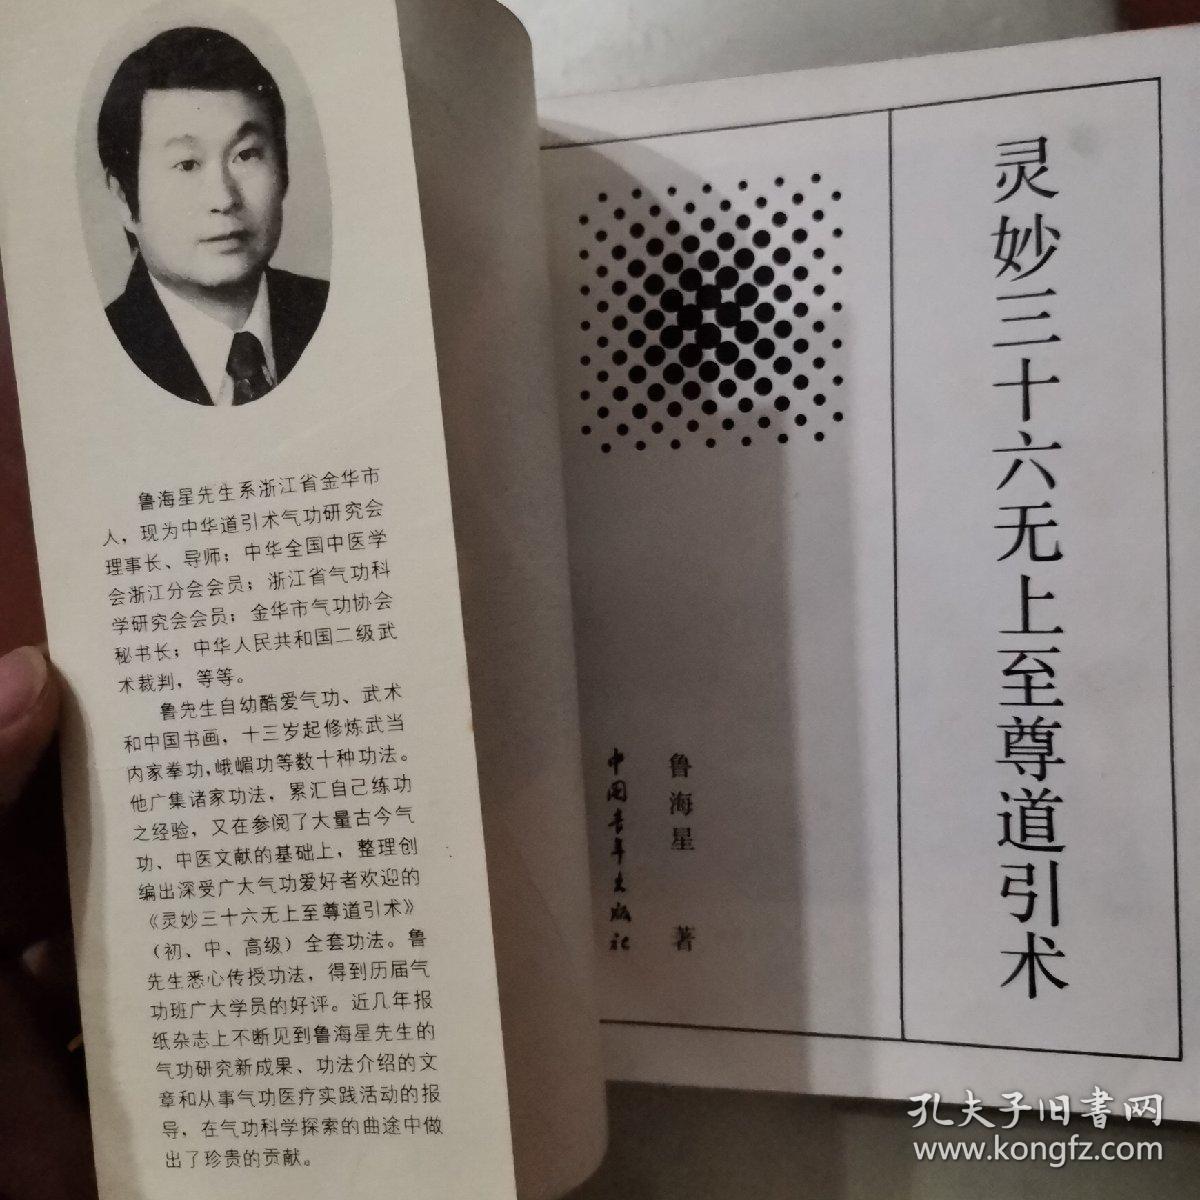 鲁海星先生系浙江省金华市
人，现为中华道引术气功研究会
理事长、导师；中华全国中医学
会浙江分会会员；浙江省气功科
学研究会会员；金华市气功协会
秘书长；中华人民共和国二级武
术裁判，等等。
鲁先生自幼酷爱气功、武术
和中国书画，十三岁起修炼武当
内家拳功，峨嵋功等数十种功法。
他广集诸家功法，累汇自己练功
之经验，又在参阅了大量古今气
功、中医文献的基础上，整理创
编出深受广大气功爱好者欢迎的
《灵妙三十六无上至尊道引术》
（初、中、高级）全套功法。鲁
先生悉心传授功法，得到历届气
功班广大学员的好评。近几年报
纸杂志上不断见到鲁海星先生的
气功研究新成果、功法介绍的文
章和从事气功医疗实践活动的报
导，在气功科学探索的曲途中做
出了珍贵的贡献。
灵妙三十六无上至尊道引术
鲁海星 著
中国青年出版社
孔夫子旧書网
www.kongfz.com